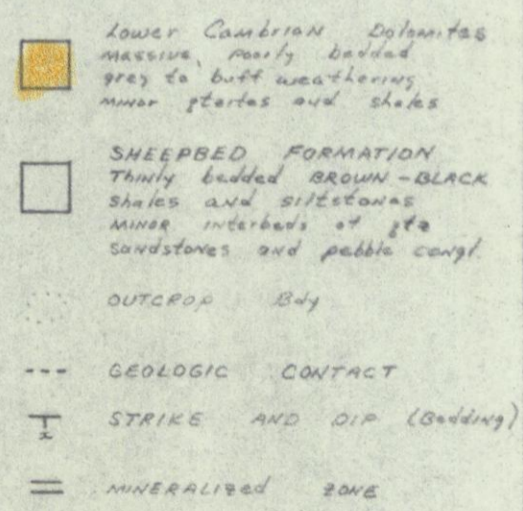 Lower Cambrian Dolomites
massive, poorly bedded
grey to buff weathering
minor qtzites and shales
SHEEPBED FORMATION
Thinly bedded BROWN-BLACK
shales and siltstones
MINOR interbeds of qtz
sandstones and pebble congl.
OUTCROP Bdy
GEOLOGIC CONTACT
x
STRIKE AND DIP (Bedding)
MINERALIZED ZONE